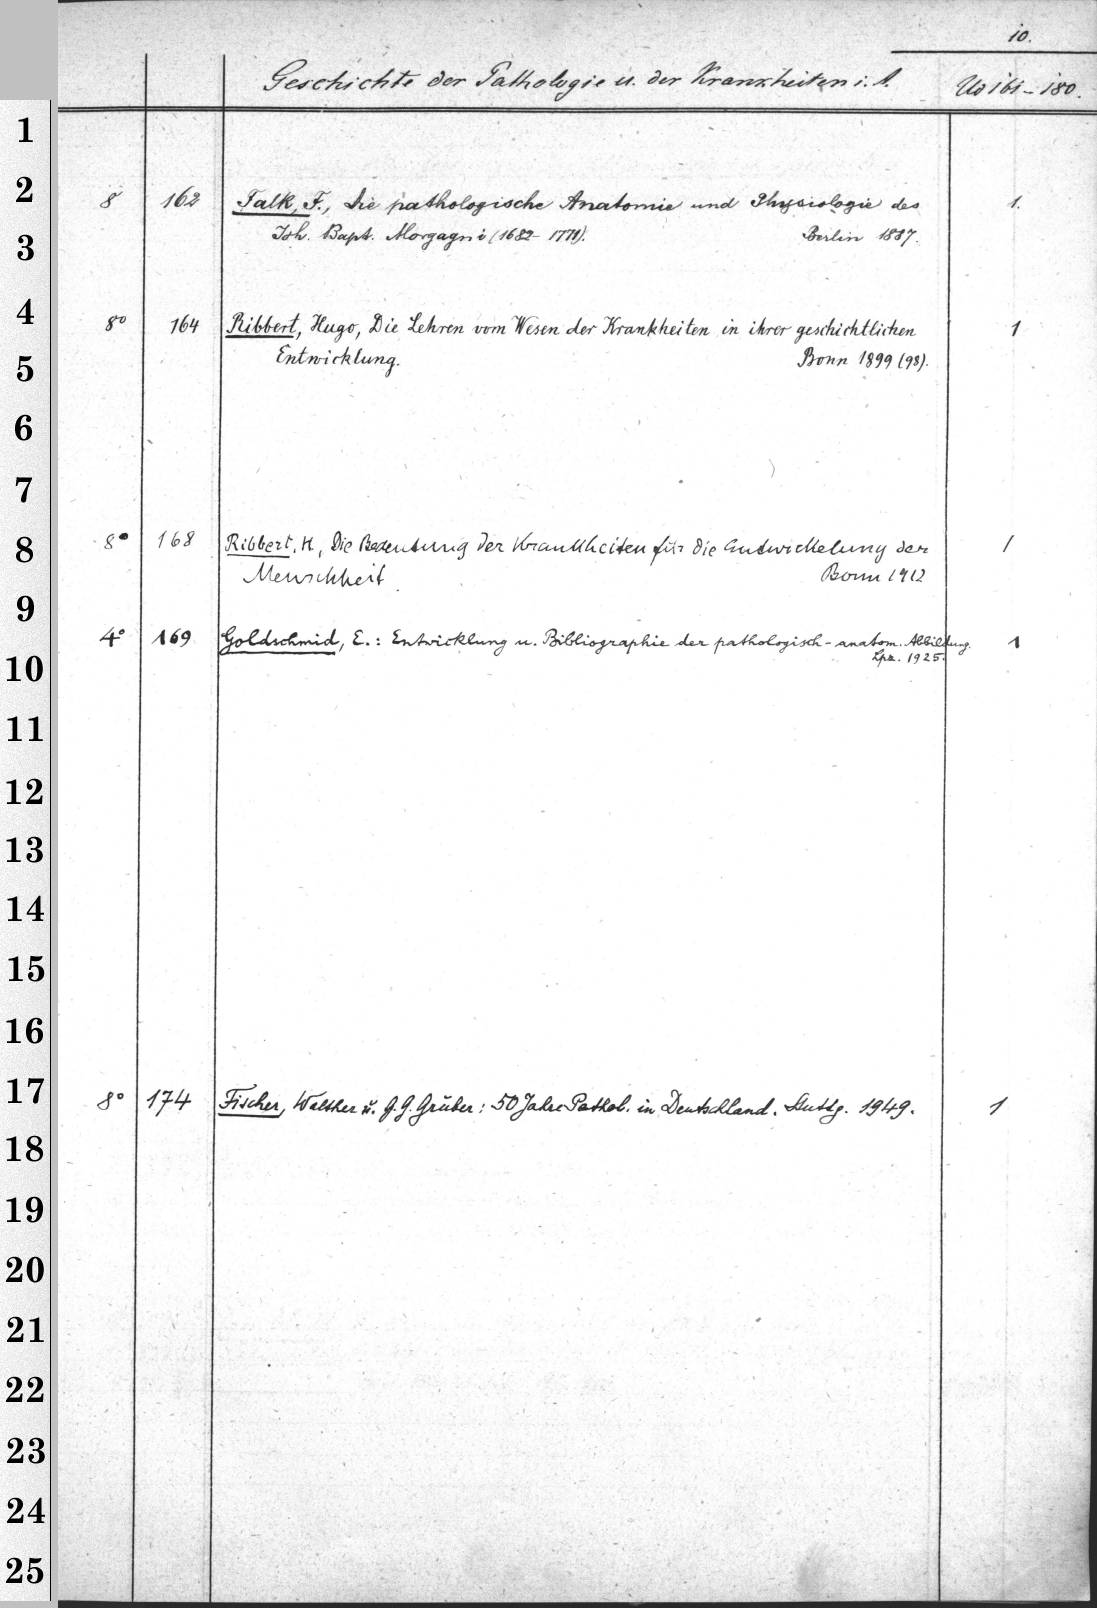 10.
Geschichte der Pathologie u. der Krankheiten i. A. Uo 161-180.
1
2
8 162 Falk, F., Die pathologische Anatomie und Physiologie des 1.
3
Joh. Bapt. Morgagni (1682-1771). Berlin 1887.
4
8o 164 Ribbert, Hugo, Die Lehren vom Wesen der Krankheiten in ihrer geschichtlichen 1
5
Entwicklung. Bonn 1899 (98).
6
7
8
8o 168 Ribbert, H., Die Bedeutung der Krankheiten für die Entwickelung der 1
Menschheit. Bonn 1912
9
4o 169 Goldschmid, E.: Entwicklung u. Bibliographie der pathologisch-anatom. Abbildung. 1
10
Lpz. 1925.
11
12
13
14
15
16
17
8o 174 Fischer, Walther u. G. G. Gruber: 50 Jahre Pathol. in Deutschland. Stuttg. 1949. 1
18
19
20
21
22
23
24
25